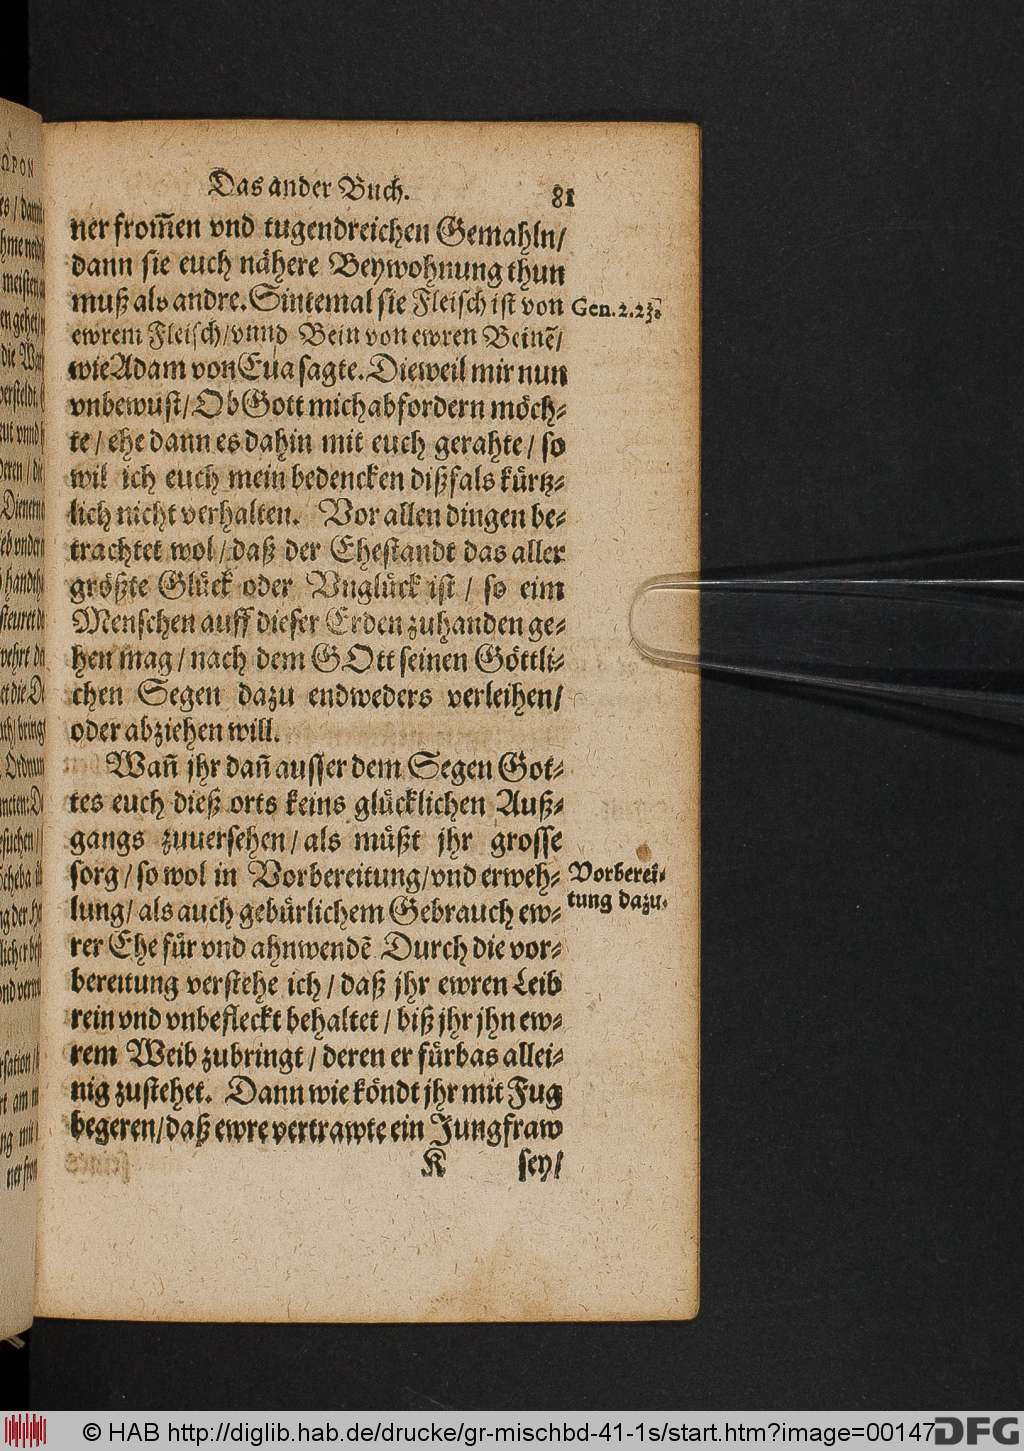 Das ander Buch. 81
ner from̃en vnd tugendreichen Gemahln/
dann sie euch nähere Beywohnung thun
muß als andre. Sintemal sie Fleisch ist von
Gen. 2. 23.
ewrem Fleisch/vnnd Bein von ewren Beinẽ/
wie Adam von Eua sagte. Dieweil mir nun
vnbewust/Ob Gott mich abfordern möch-
te/ehe dann es dahin mit euch gerahte/so
wil ich euch mein bedencken dißfals kürtz-
lich nicht verhalten. Vor allen dingen be-
trachtet wol/daß der Ehestandt das aller
größte Glück oder Vnglück ist/so eim
Menschen auff dieser Erden zuhanden ge-
hen mag/nach dem GOtt seinen Göttli-
chen Segen dazu endweders verleihen/
oder abziehen will.
Wañ jhr dañ ausser dem Segen Got-
tes euch dieß orts keins glücklichen Auß-
gangs zuuersehen/als müßt jhr grosse
sorg/so wol in Vorbereitung/vnd erweh-
Vorberei-
tung dazu.
lung/als auch gebürlichem Gebrauch ew-
rer Ehe für vnd ahnwendẽ Durch die vor-
bereitung verstehe ich/daß jhr ewren Leib
rein vnd vnbefleckt behaltet/biß jhr jhn ew-
rem Weib zubringt/deren er fürbas allei-
nig zustehet. Dann wie köndt jhr mit Fug
begeren/daß ewre vertrawte ein Jungfraw
K sey/
© HAB http://diglib.hab.de/drucke/gr-mischbd-41-1s/start.htm?image=00147
DFG